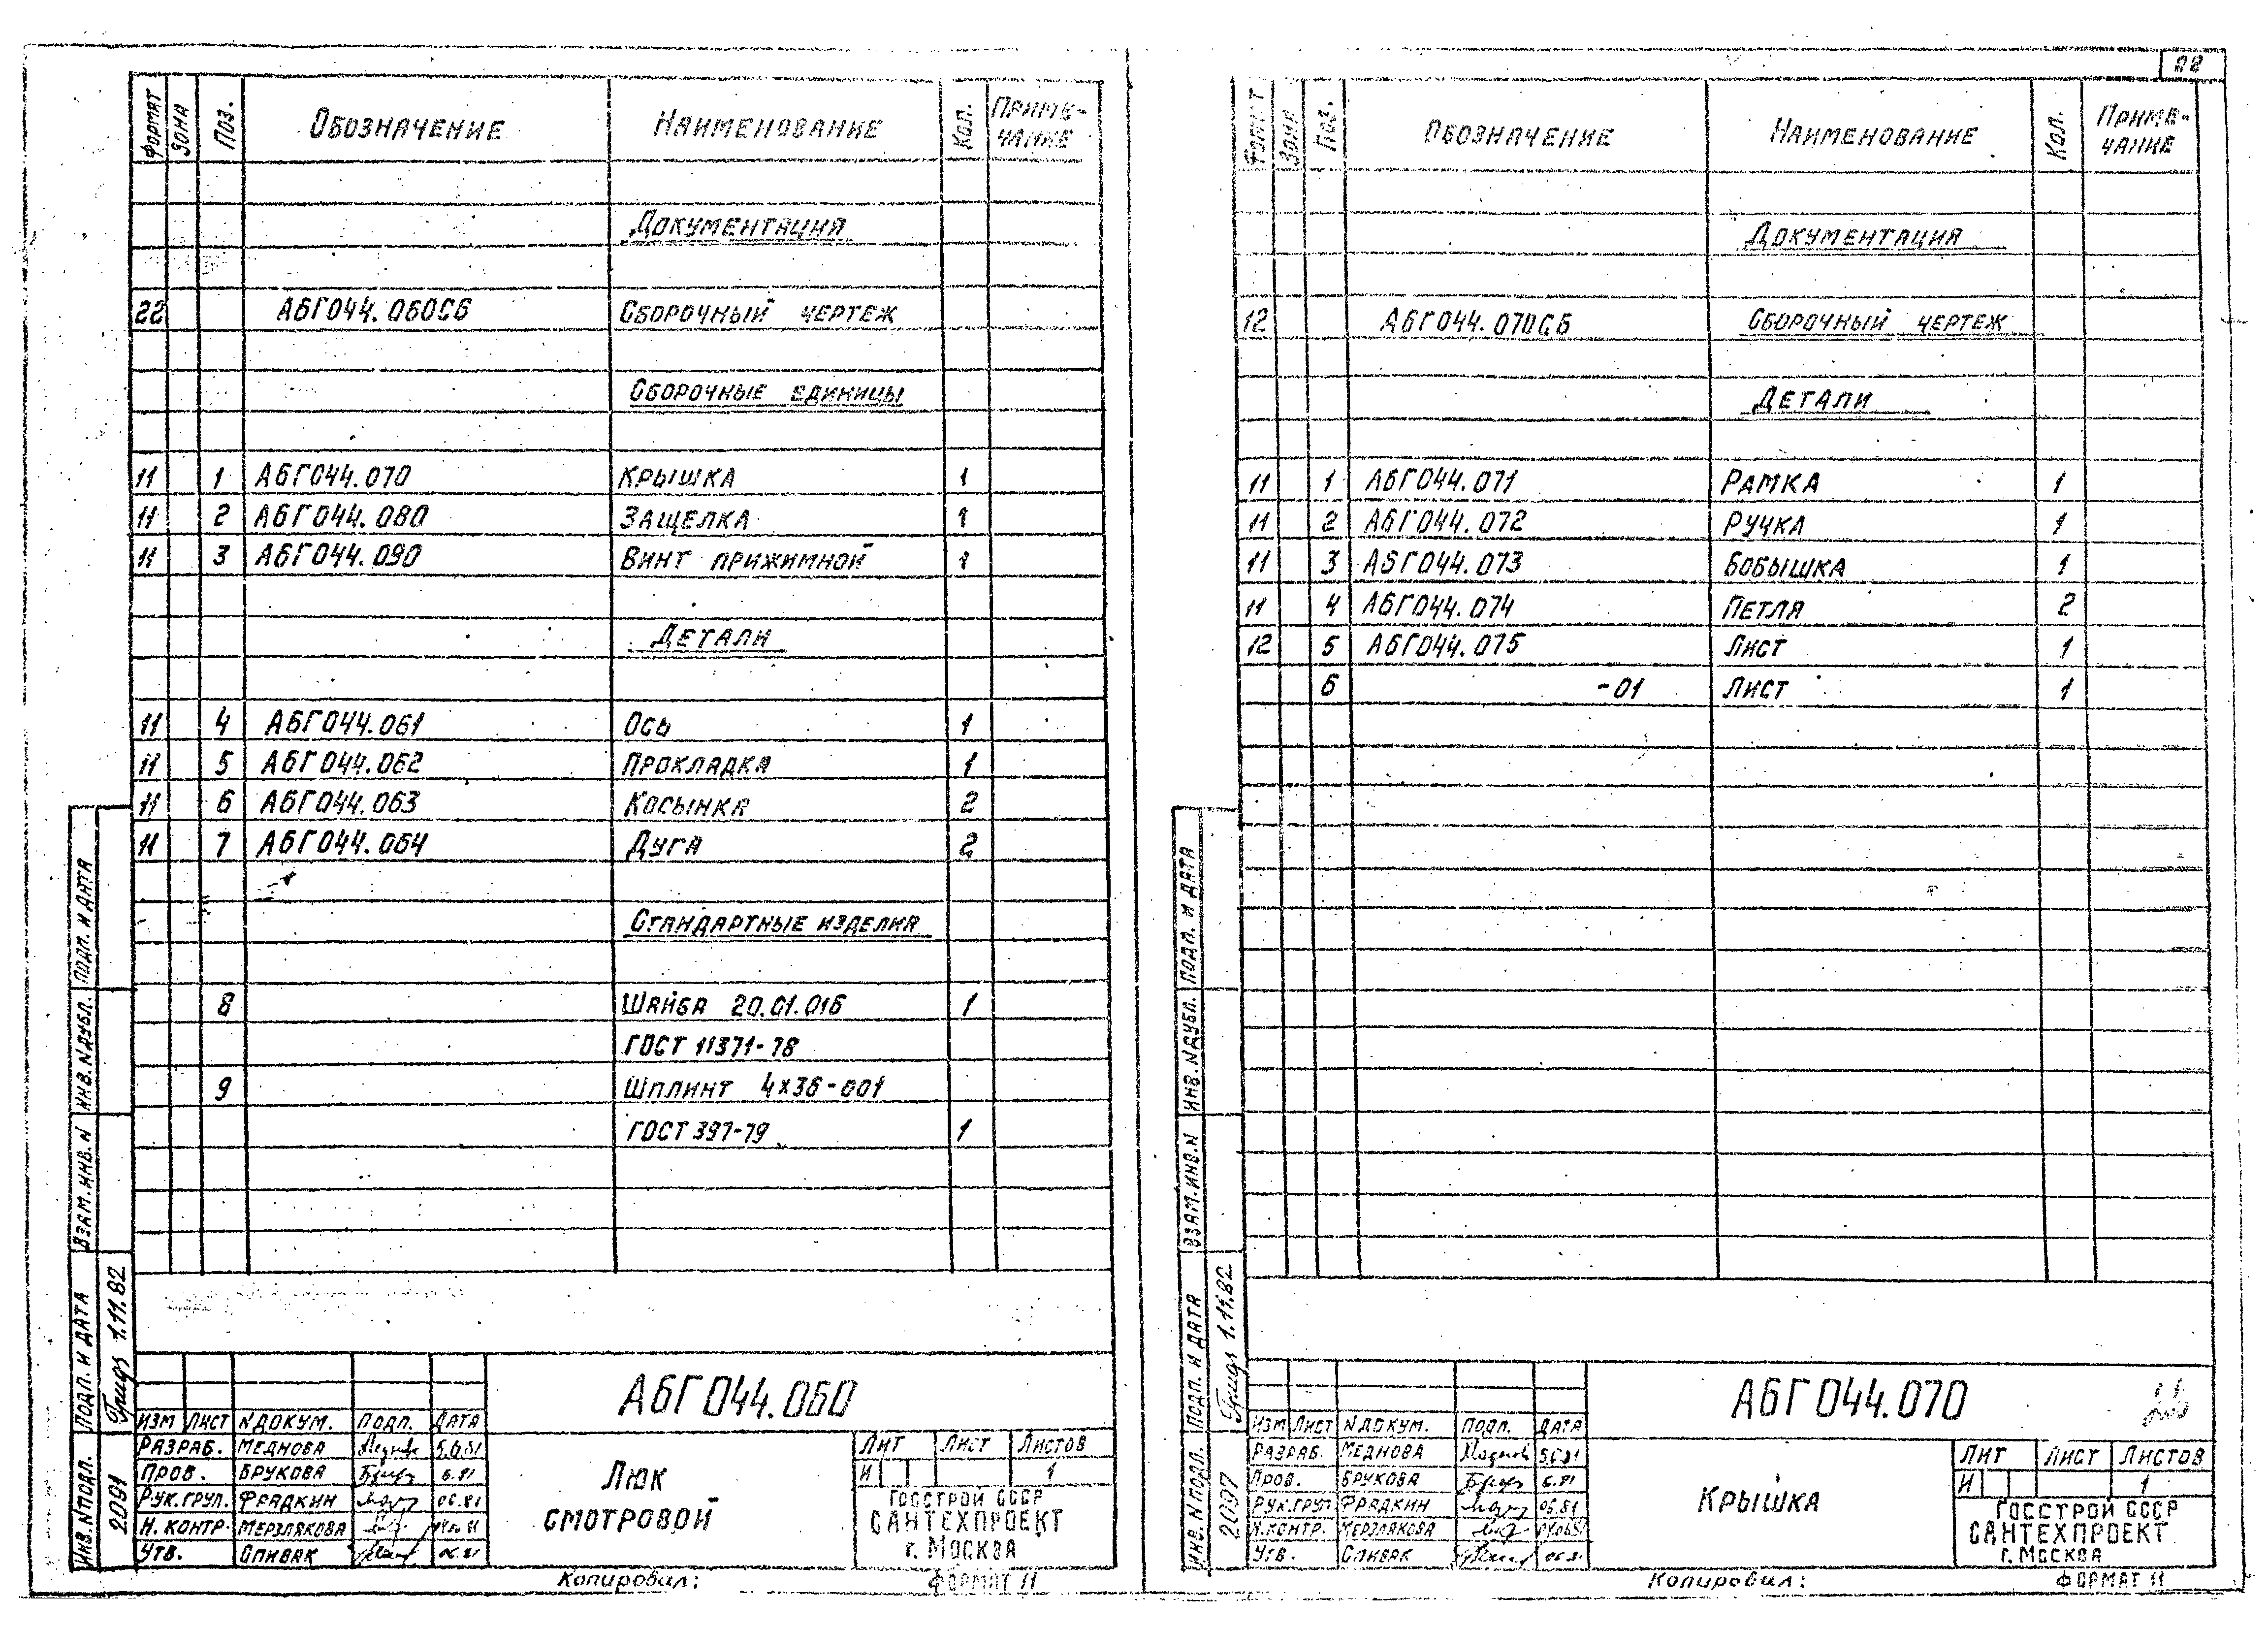 22
Формат Зона Поз. Обозначение Наименование Кол. Примечание
Документация
22 АБГ044.060СБ Сборочный чертеж
Сборочные единицы
11 1 АБГ044.070 Крышка 1
11 2 АБГ044.080 Защелка 1
11 3 АБГ044.090 Винт прижимной 1
Детали
11 4 АБГ044.061 Ось 1
11 5 АБГ044.062 Прокладка 1
11 6 АБГ044.063 Косынка 2
11 7 АБГ044.064 Дуга 2
Стандартные изделия
8 Шайба 20.01.016 1
ГОСТ 11371-78
9 Шплинт 4х36-001
ГОСТ 397-79 1
Подп. и дата
Инв. N дубл.
Взам. инв. N
Подп. и дата 1.11.82
Инв. N подл. 2091
АБГ044.060
Изм Лист N докум. Подп. Дата
Разраб. Меднова 5.6.81
Пров. Брукова 6.81
Рук. груп. Фрядкин 06.81
Н. контр. Мерзлякова
Утв. Спивак 06.81
Люк
смотровой
Лит Лист Листов
И 1
Госстрой СССР
САНТЕХПРОЕКТ
г. Москва
Копировал: Формат 11
Формат Зона Поз. Обозначение Наименование Кол. Примечание
Документация
12 АБГ044.070СБ Сборочный чертеж
Детали
11 1 АБГ044.071 Рамка 1
11 2 АБГ044.072 Ручка 1
11 3 АБГ044.073 Бобышка 1
11 4 АБГ044.074 Петля 2
12 5 АБГ044.075 Лист 1
6 -01 Лист 1
Подп. и дата
Инв. N дубл.
Взам. инв. N
Подп. и дата 1.11.82
Инв. N подл. 2097
АБГ044.070
Изм Лист N докум. Подп. Дата
Разраб. Меднова 5.6.81
Пров. Брукова 6.81
Рук. груп Фрядкин 06.81
Н. контр. Мерзлякова
Утв. Спивак
Крышка
Лит Лист Листов
И 1
Госстрой СССР
САНТЕХПРОЕКТ
г. Москва
Копировал: Формат 11